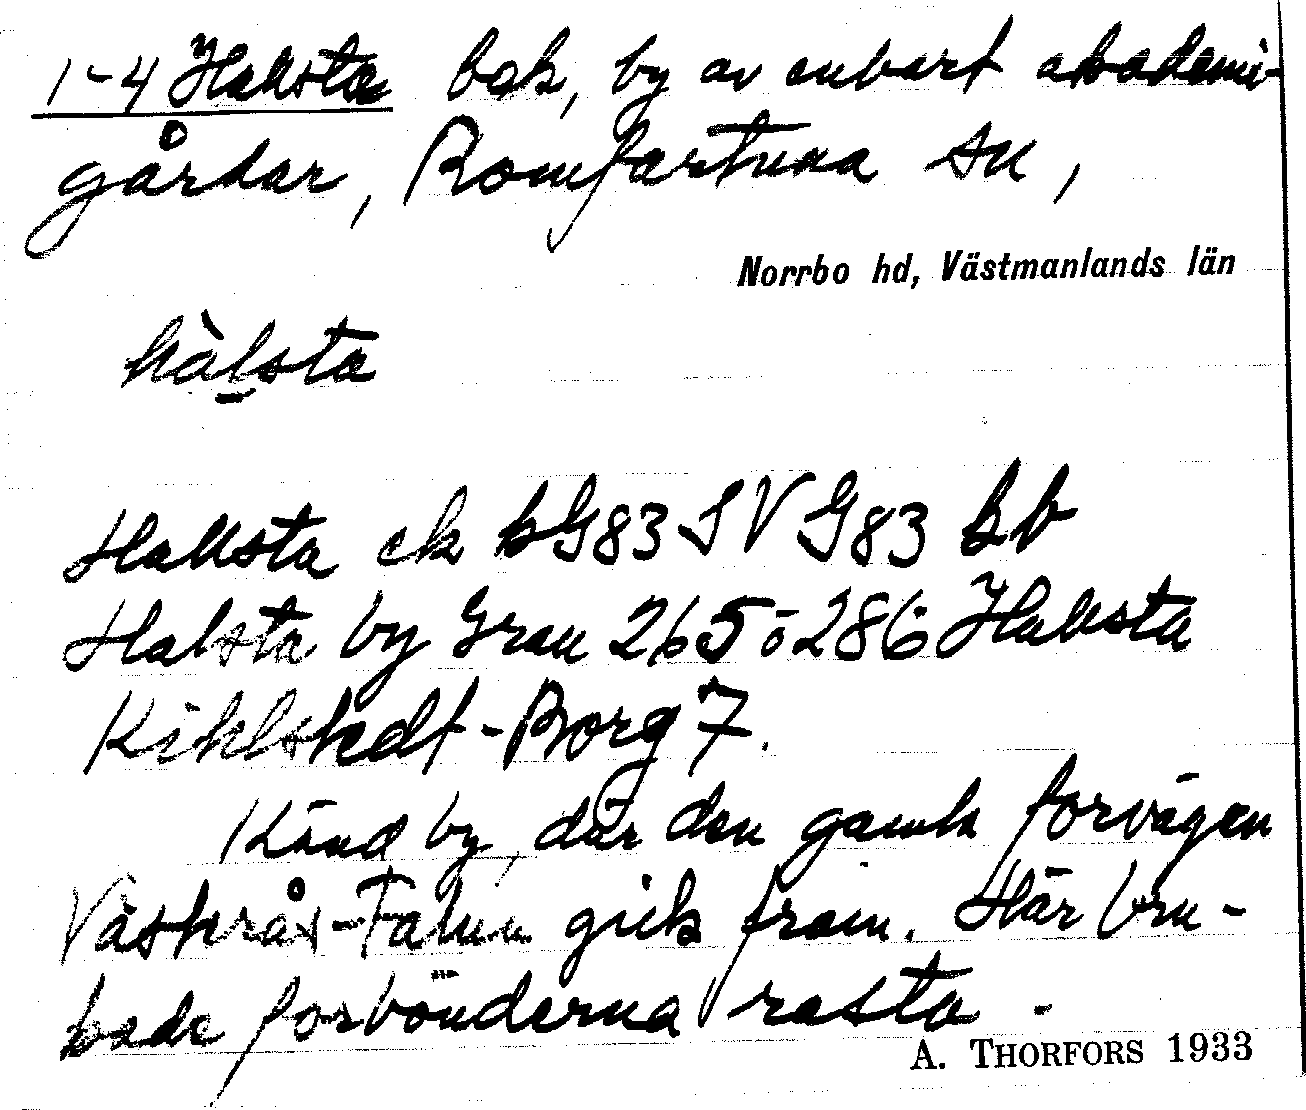 1-4 Hallsta bok, by av enbart akademi-
gårdar, Romfartuna sn,
Norrbo hd, Västmanlands län
hàlsta
Hallsta ek bG83 SV G83 bb
Halsta by Gran 265 ö 286 Hallsta
Kihlstedt-Borg 7.
Känd by, där den gamla forvägen
Västerås-Falun gick fram. Här bru-
kade forbönderna rasta.
A. THORFORS 1933